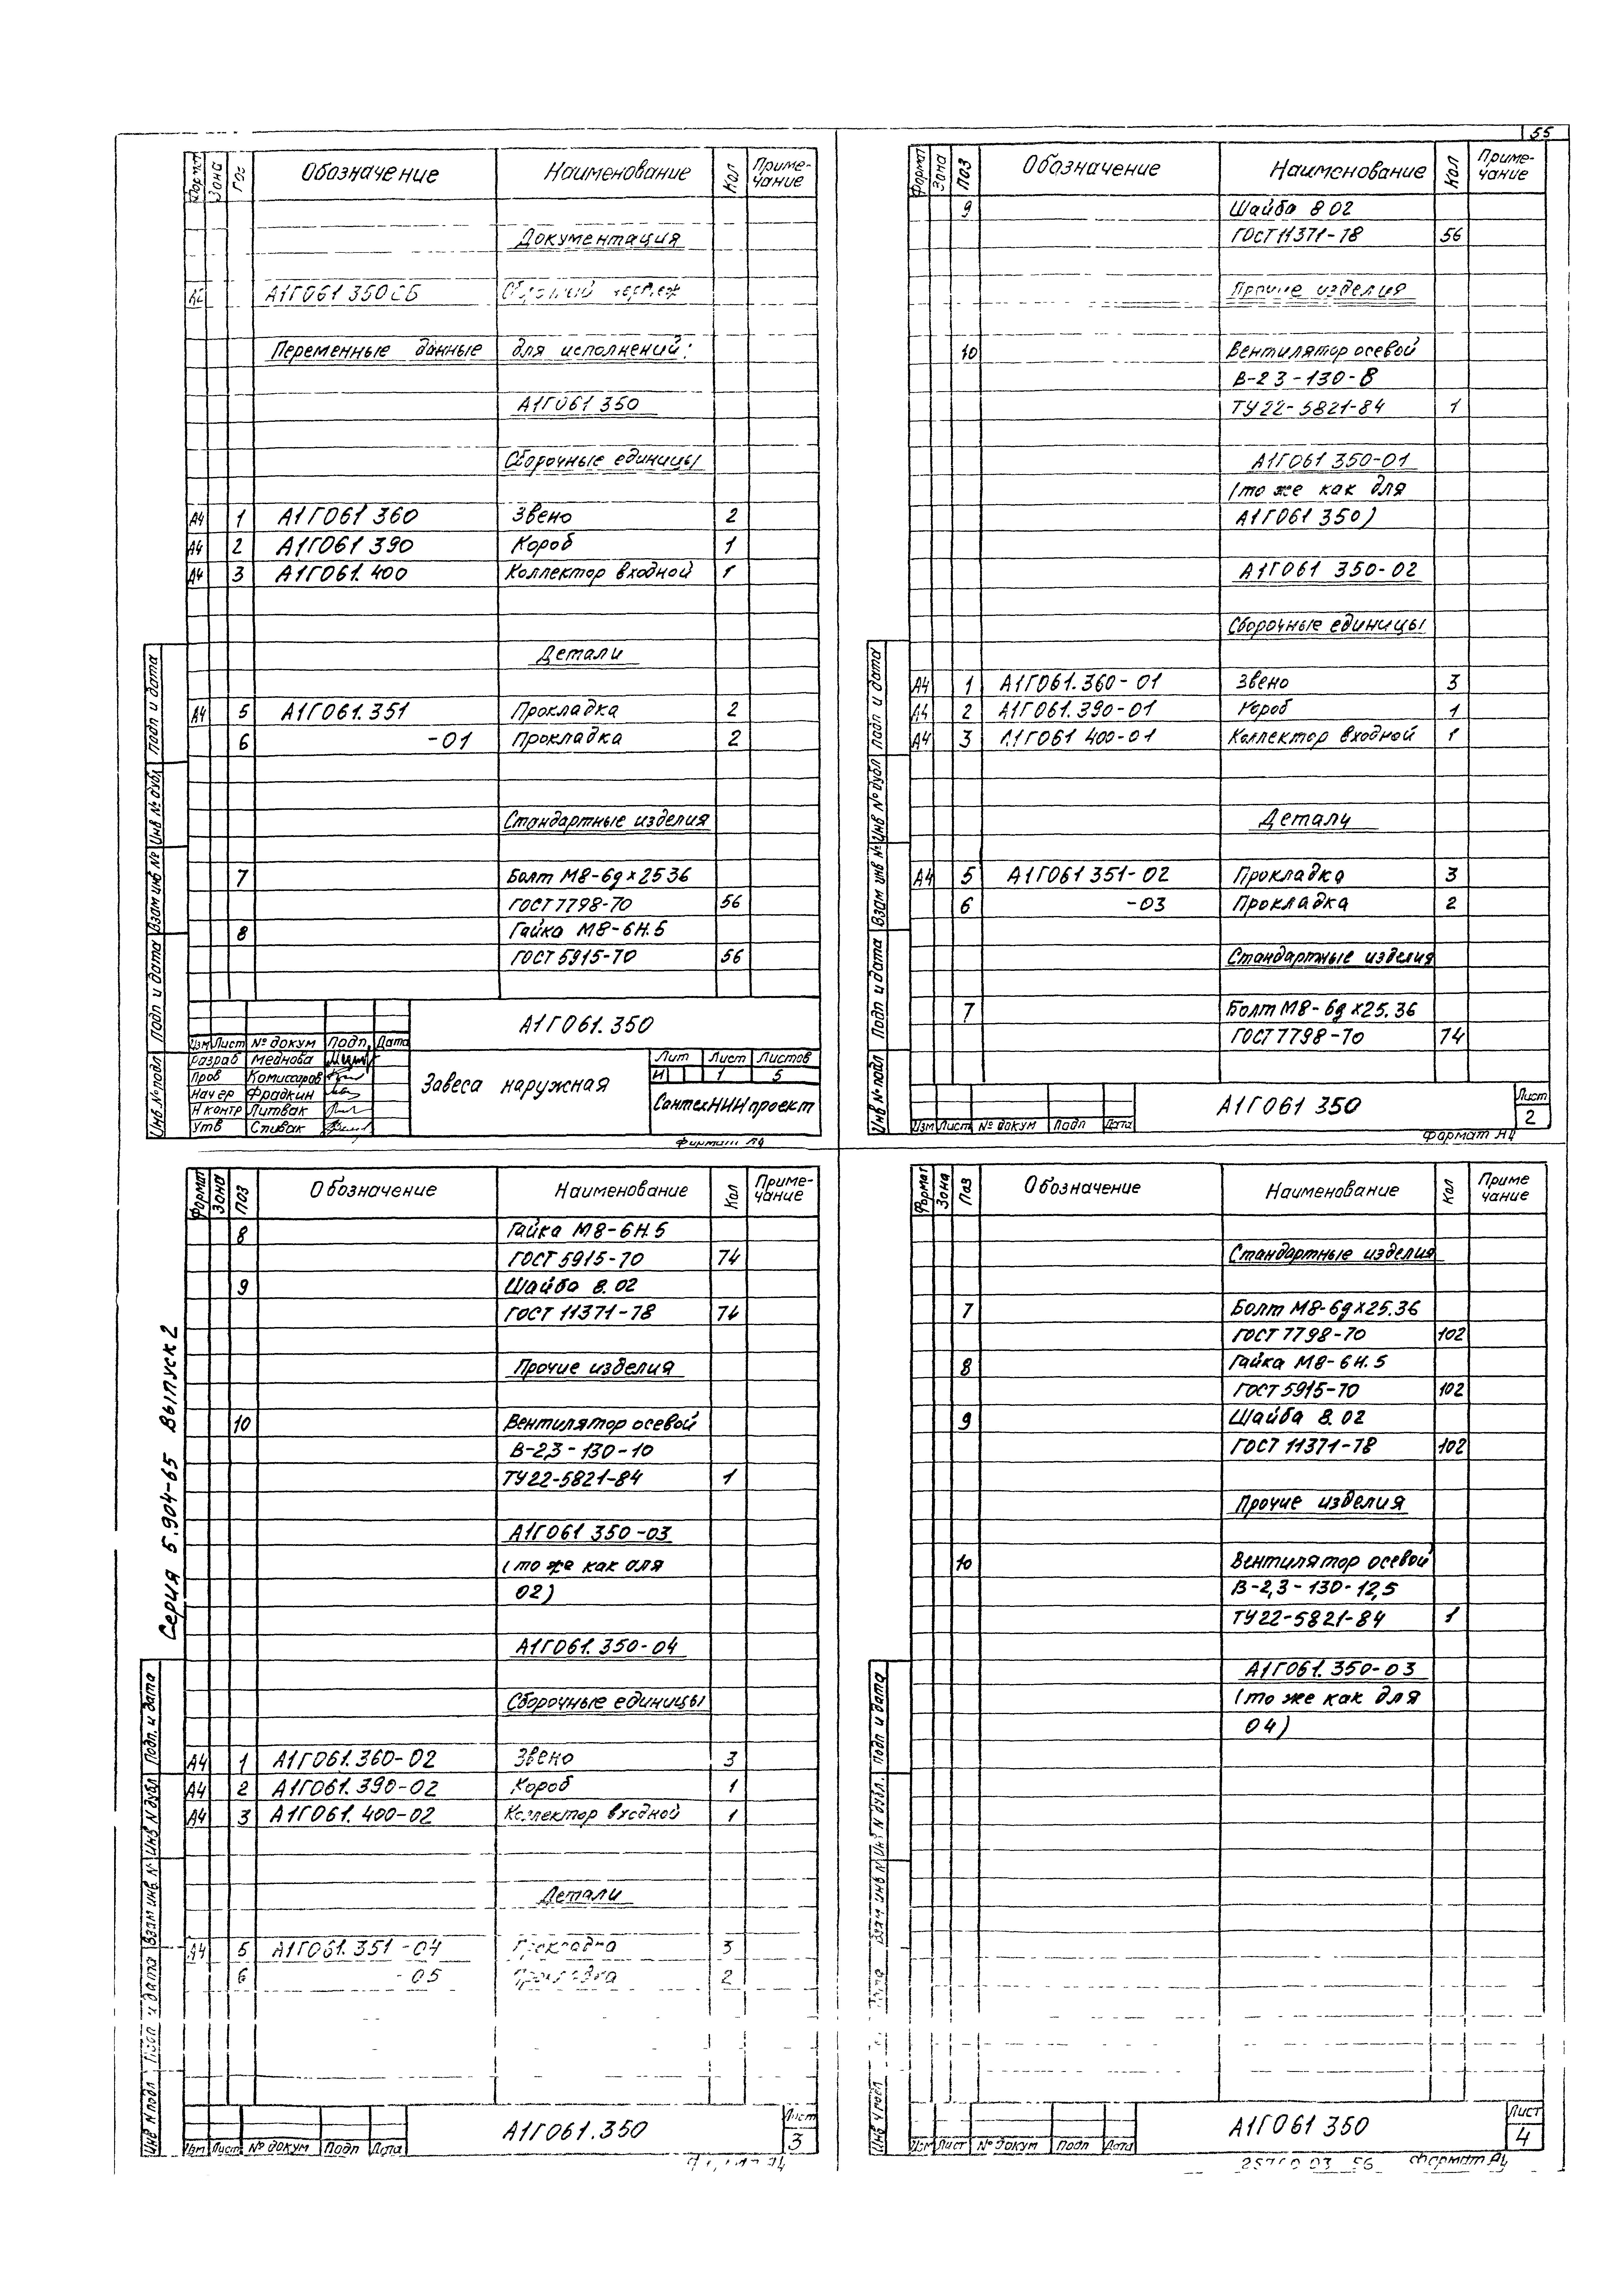 55
Формат Зона Поз Обозначение Наименование Кол Приме-
чание
Документация
А2 А1Г061 350СБ Сборочный чертеж
Переменные данные для исполнений:
А1Г061 350
Сборочные единицы
А4 1 А1Г061 360 Звено 2
А4 2 А1Г061 390 Короб 1
А4 3 А1Г061.400 Коллектор входной 1
Детали
А4 5 А1Г061.351 Прокладка 2
6 -01 Прокладка 2
Стандартные изделия
7 Болт М8-6gх25 36
ГОСТ 7798-70 56
8 Гайка М8-6Н.5
ГОСТ 5915-70 56
Инв № подл Подп и дата Взам инв № Инв № дубл Подп и дата
А1Г061.350
Изм Лист № докум Подп. Дата
Разраб Меднова
Пров Комиссаров
Нач ер Фрадкин
Н контр Литвак
Утв Спивак
Завеса наружная
Лит Лист Листов
И 1 5
СантехНИИпроект
Формат А4
Формат Зона Поз Обозначение Наименование Кол Приме-
чание
9 Шайба 8 02
ГОСТ 11371-78 56
Прочие изделия
10 Вентилятор осевой
В-2 3-130-8
ТУ 22-5821-84 1
А1Г061 350-01
(то же как для
А1Г061 350)
А1Г061 350-02
Сборочные единицы
А4 1 А1Г061.360-01 Звено 3
А4 2 А1Г061.390-01 Короб 1
А4 3 А1Г061 400-01 Коллектор входной 1
Детали
А4 5 А1Г061 351-02 Прокладка 3
6 -03 Прокладка 2
Стандартные изделия
7 Болт М8-6gх25.36
ГОСТ 7798-70 74
Инв № подл Подп и дата Взам инв № Инв № дубл Подп и дата
Изм Лист № докум Подп Дата
А1Г061 350
Лист
2
Формат А4
Серия 5.904-65 Выпуск 2
Формат Зона Поз Обозначение Наименование Кол Приме-
чание
8 Гайка М8-6Н.5
ГОСТ 5915-70 74
9 Шайба 8.02
ГОСТ 11371-78 74
Прочие изделия
10 Вентилятор осевой
В-2,3-130-10
ТУ 22-5821-84 1
А1Г061 350-03
(то же как для
02)
А1Г061.350-04
Сборочные единицы
А4 1 А1Г061.360-02 Звено 3
А4 2 А1Г061.390-02 Короб 1
А4 3 А1Г061.400-02 Коллектор входной 1
Детали
А4 5 А1Г061.351-04 Прокладка 3
6 -05 Прокладка 2
Инв N подл Подп и дата Взам инв. N Инв N дубл Подп. и дата
Изм Лист № докум Подп Дата
А1Г061.350
Лист
3
Формат А4
Формат Зона Поз Обозначение Наименование Кол Приме
чание
Стандартные изделия
7 Болт М8-6gх25.36
ГОСТ 7798-70 102
8 Гайка М8-6Н.5
ГОСТ 5915-70 102
9 Шайба 8.02
ГОСТ 11371-78 102
Прочие изделия
10 Вентилятор осевой
В-2,3-130-12,5
ТУ 22-5821-84 1
А1Г061.350-03
(то же как для
04)
Взам инв N Инв N дубл. Подп и дата
Изм Лист № докум Подп Дата
А1Г061 350
Лист
4
56 Формат А4